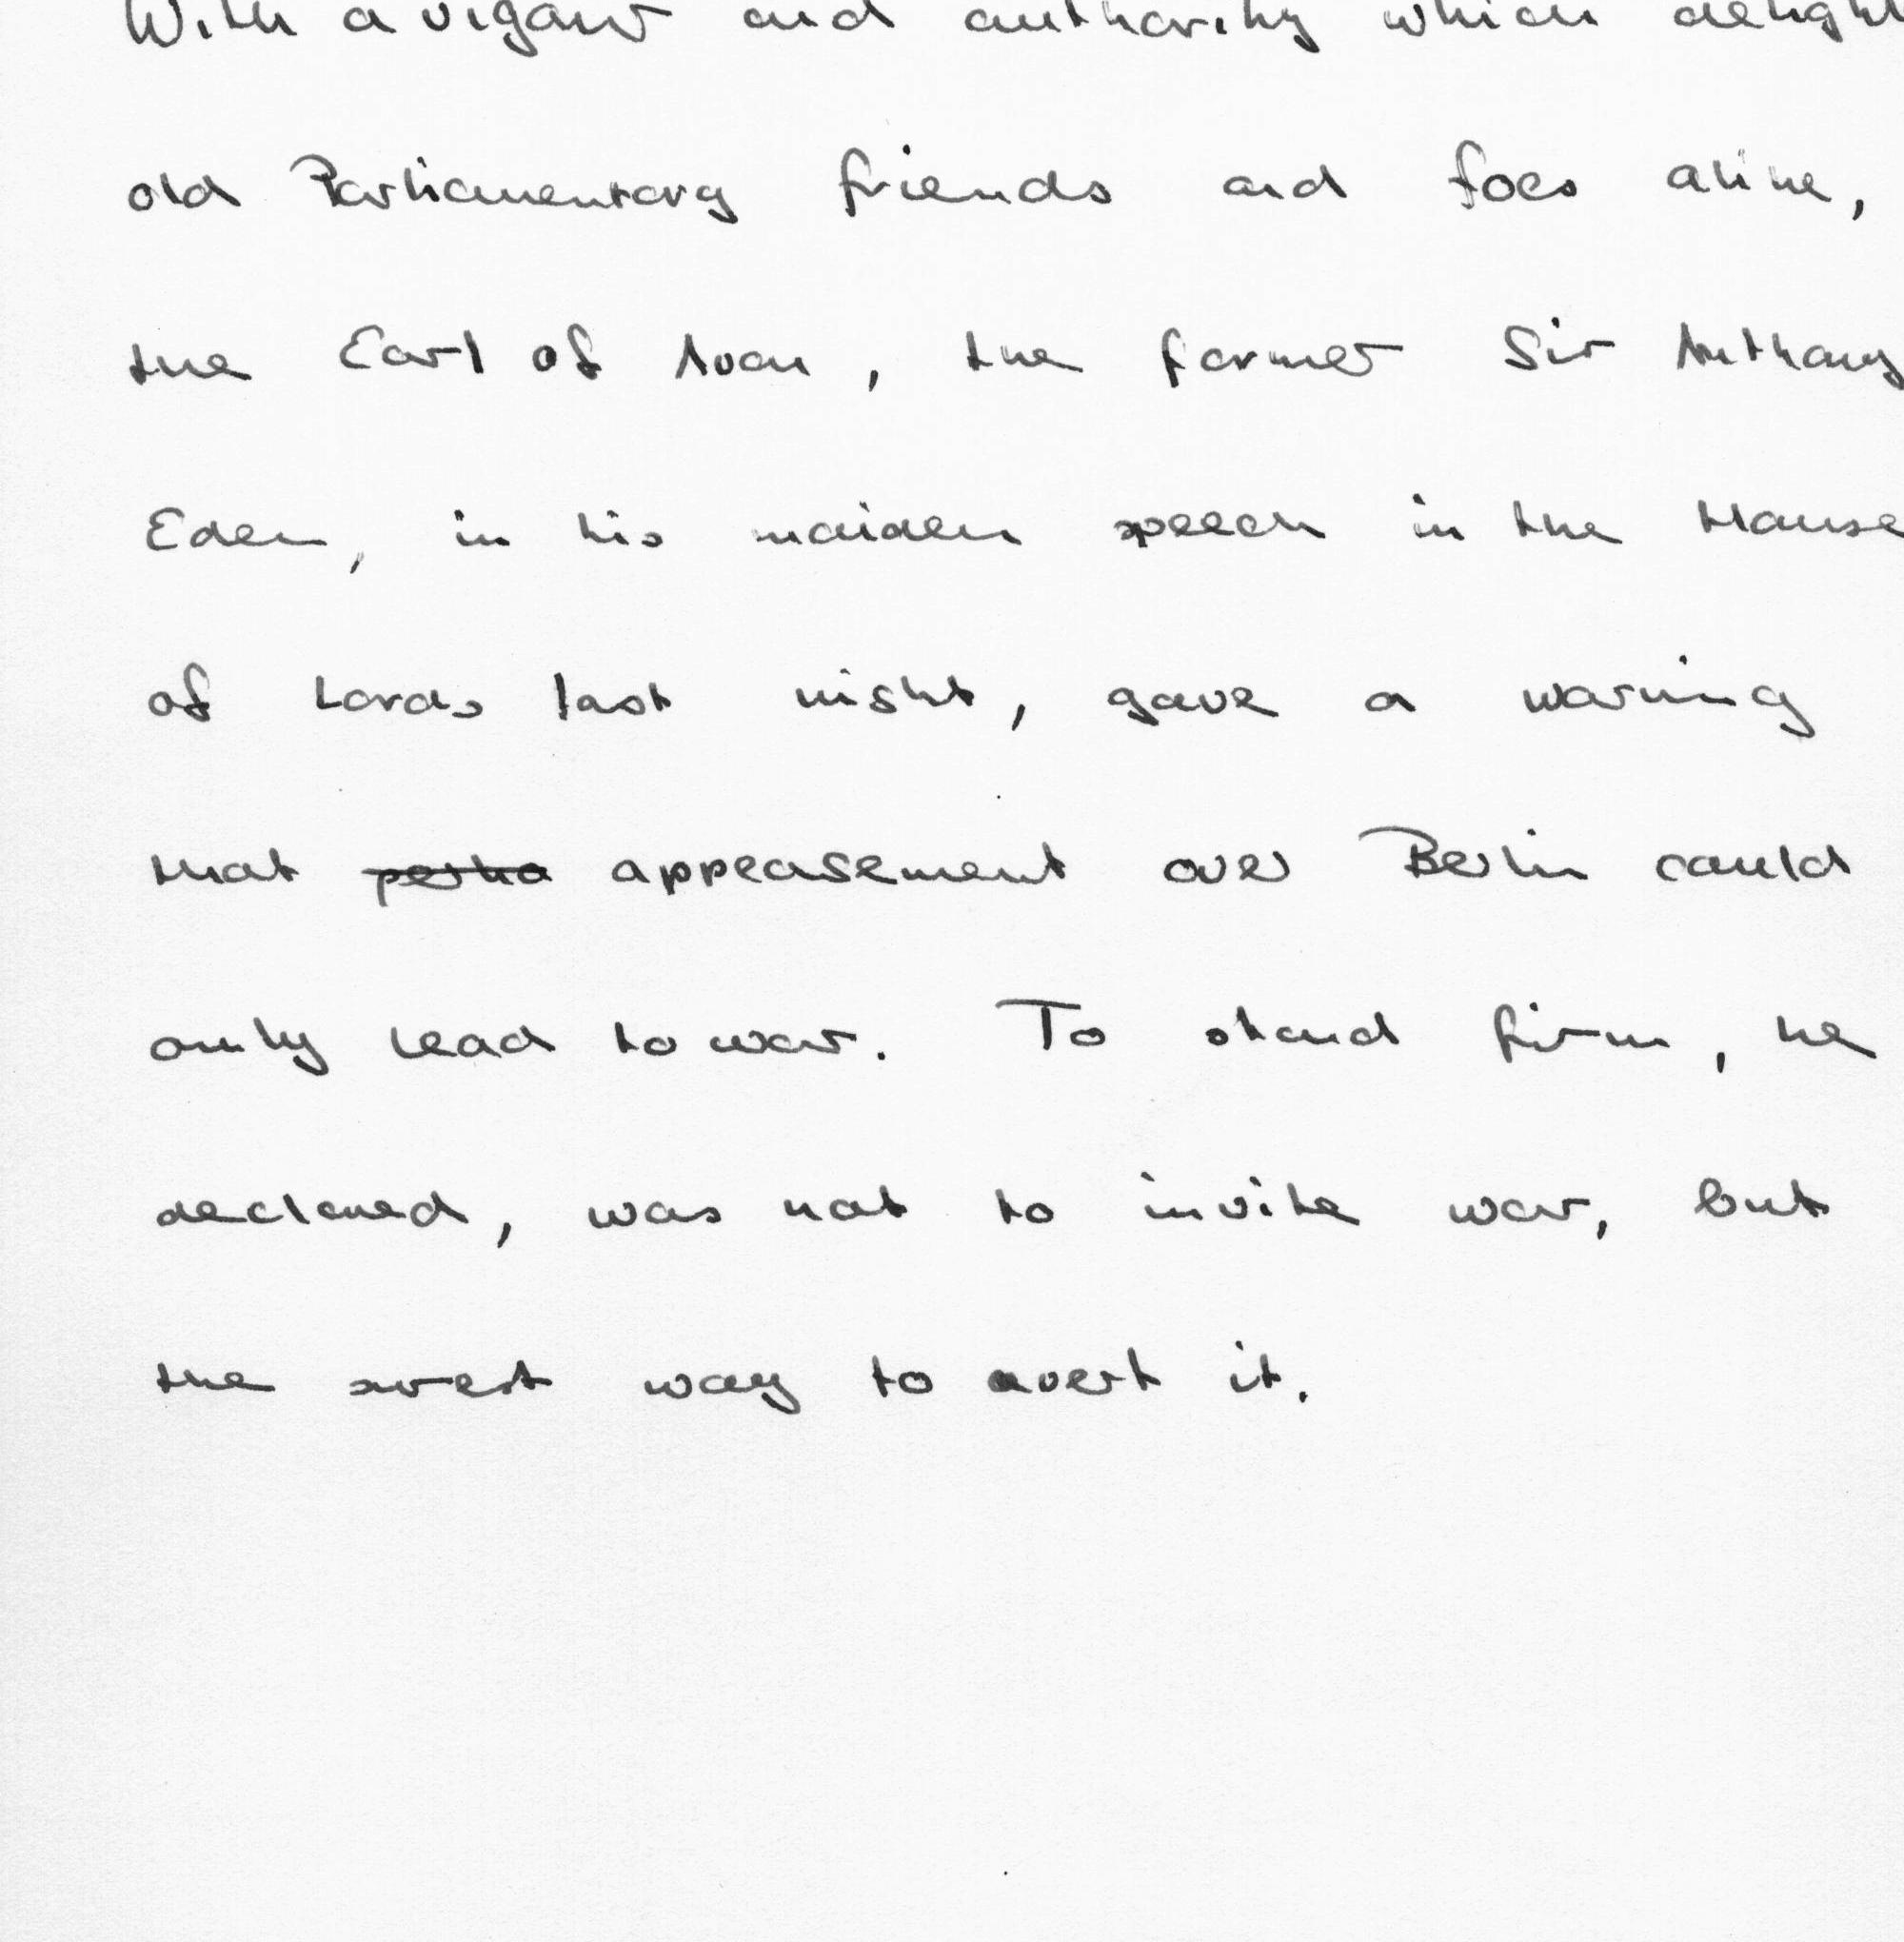 With a vigour and authority which delight
old Parliamentary friends and foes alike,
the Earl of Avon, the former Sir Anthony
Eden, in his maiden speech in the House
of Lords last night, gave a warning
that appeasement over Berlin could
only lead to war. To stand firm, he
declared, was not to invite war, but
the surest way to avert it.